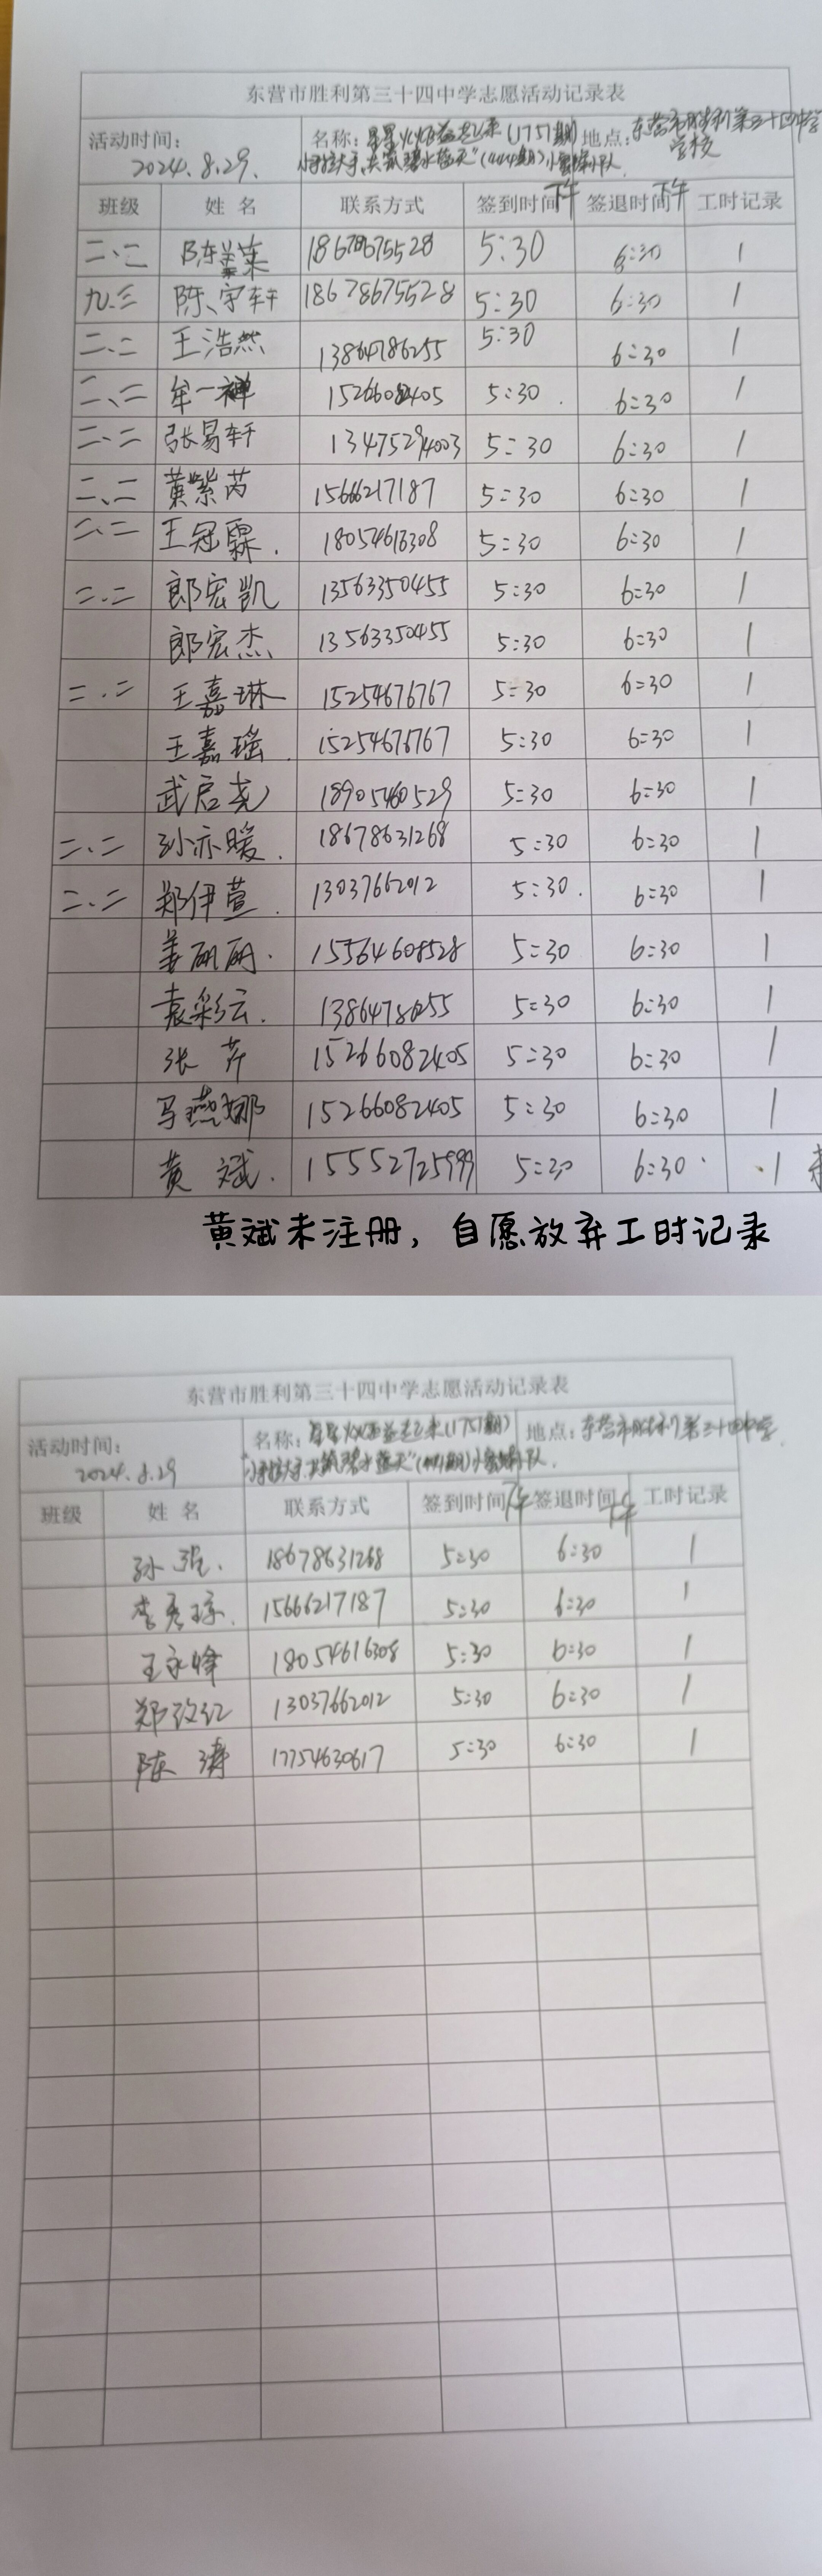 东营市胜利第三十四中学志愿活动记录表
活动时间： 名称：星星火炬益起来(1751期) 地点：东营市胜利第三十四中学
2024.8.29. 小手拉大手，共筑碧水蓝天" 小队 学校
班级 姓名 联系方式 签到时间下午 签退时间下午 工时记录
二、二 陈 18678675528 5:30 6:30 1
九.三 陈宇轩 18678675528 5:30 6:30 1
二、二 王浩然 13864786255 5:30 6:30 1
二、二 牟一禅 15266082405 5:30 6:30 1
二、二 张易轩 13475294003 5:30 6:30 1
二、二 黄紫芮 15666217187 5:30 6:30 1
二、二 王冠霖. 18054616308 5:30 6:30 1
二.二 郎宏凯 13563350455 5:30 6:30 1
郎宏杰 13563350455 5:30 6:30 1
二.二 王嘉琳 15254676767 5:30 6:30 1
王嘉瑶 15254676767 5:30 6:30 1
武启尧 18905460529 5:30 6:30 1
二、二 孙亦暖. 18678631268 5:30 6:30 1
二、二 郑伊萱. 13037662012 5:30. 6:30 1
姜丽丽. 15564608528 5:30 6:30 1
袁彩云. 5:30 6:30 1
张芹 15266082405 5:30 6:30 1
马燕娜 15266082405 5:30 6:30 1
黄斌. 15552725999 5:30 6:30 1
黄斌未注册，自愿放弃工时记录
东营市胜利第三十四中学志愿活动记录表
活动时间： 名称：星星火炬益起来(1751期) 地点：东营市胜利第三十四中学
2024.8.29 "小手拉大手，共筑碧水蓝天" 小队.
班级 姓名 联系方式 签到时间下午 签退时间下午 工时记录
孙强. 18678631268 5:30 6:30 1
李秀琼. 15666217187 5:30 6:30 1
王永峰 18054616308 5:30 6:30 1
郑政红 13037662012 5:30 6:30 1
陈涛 17754630617 5:30 6:30 1